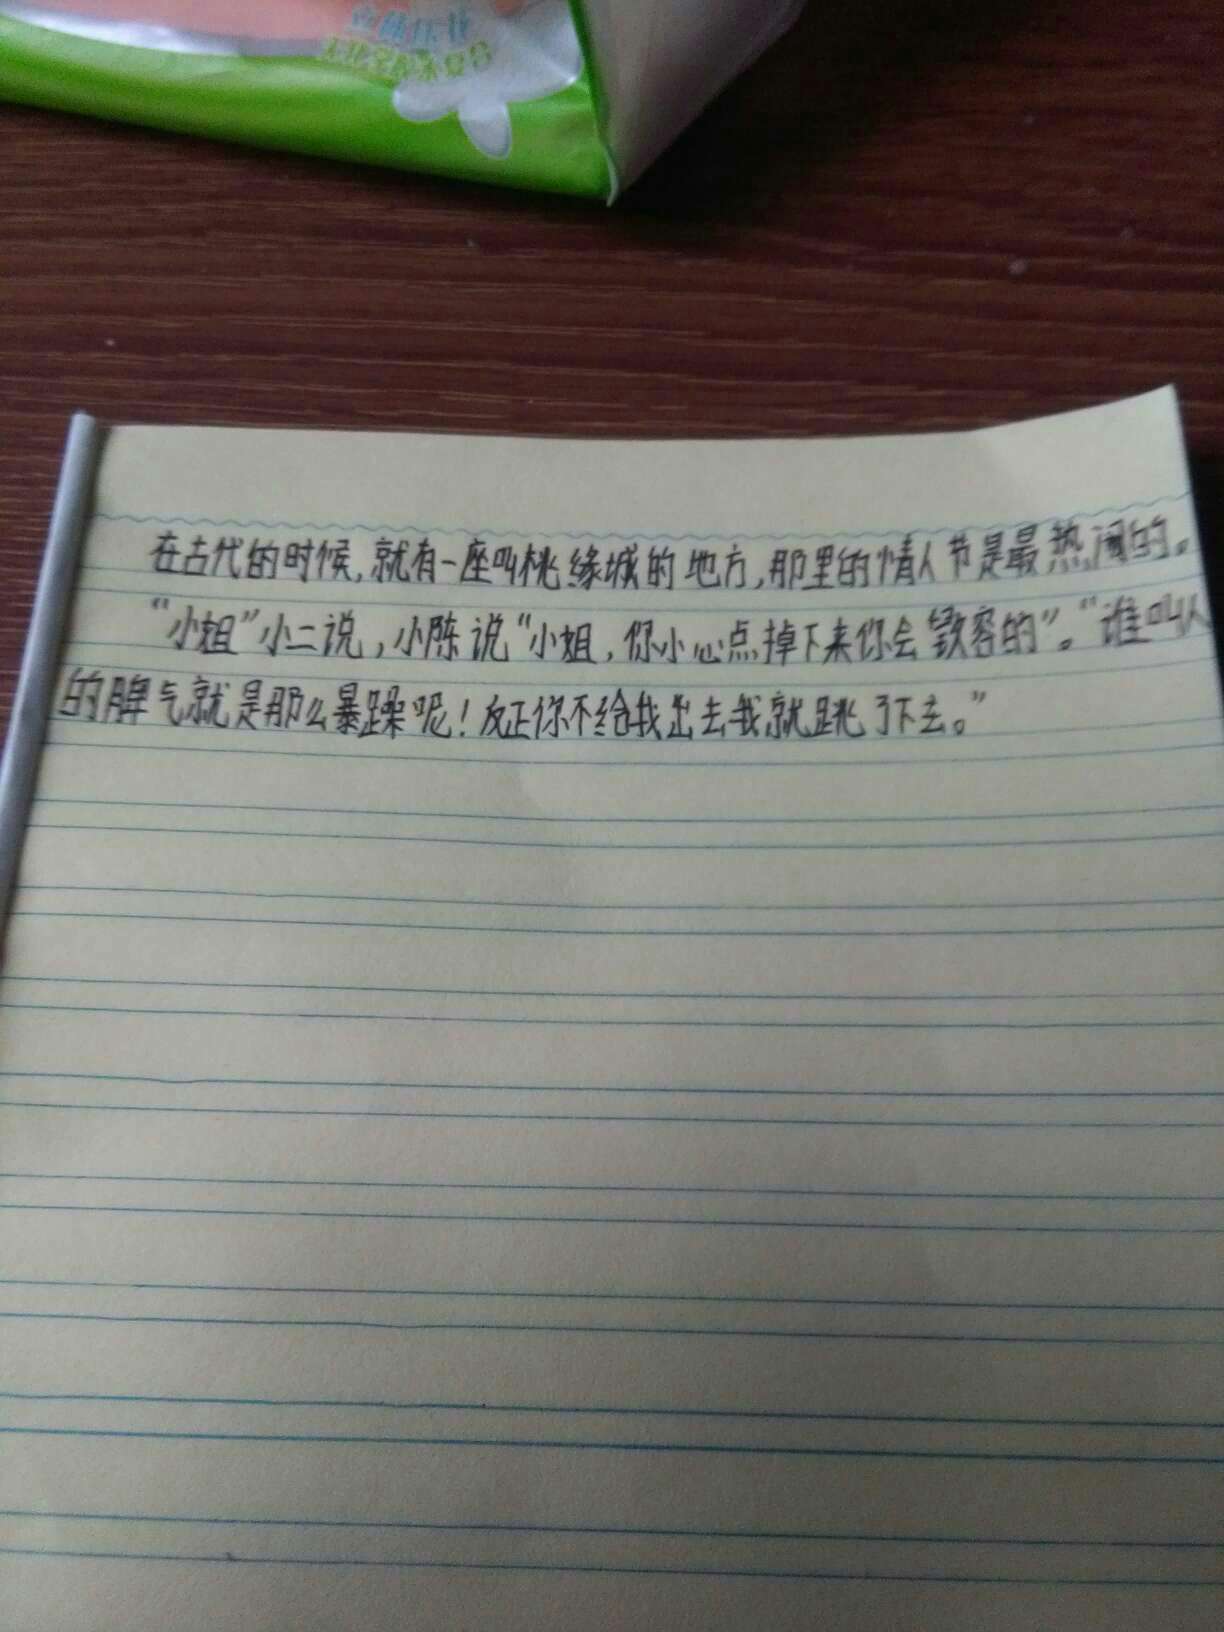 立体压花
在古代的时候,就有一座叫桃缘城的地方,那里的情人节是最热闹的。
“小姐”小二说,小陈说“小姐,你小心点掉下来你会毁容的”。“谁叫人
的脾气就是那么暴躁呢!反正你不给我出去我就跳了下去。”